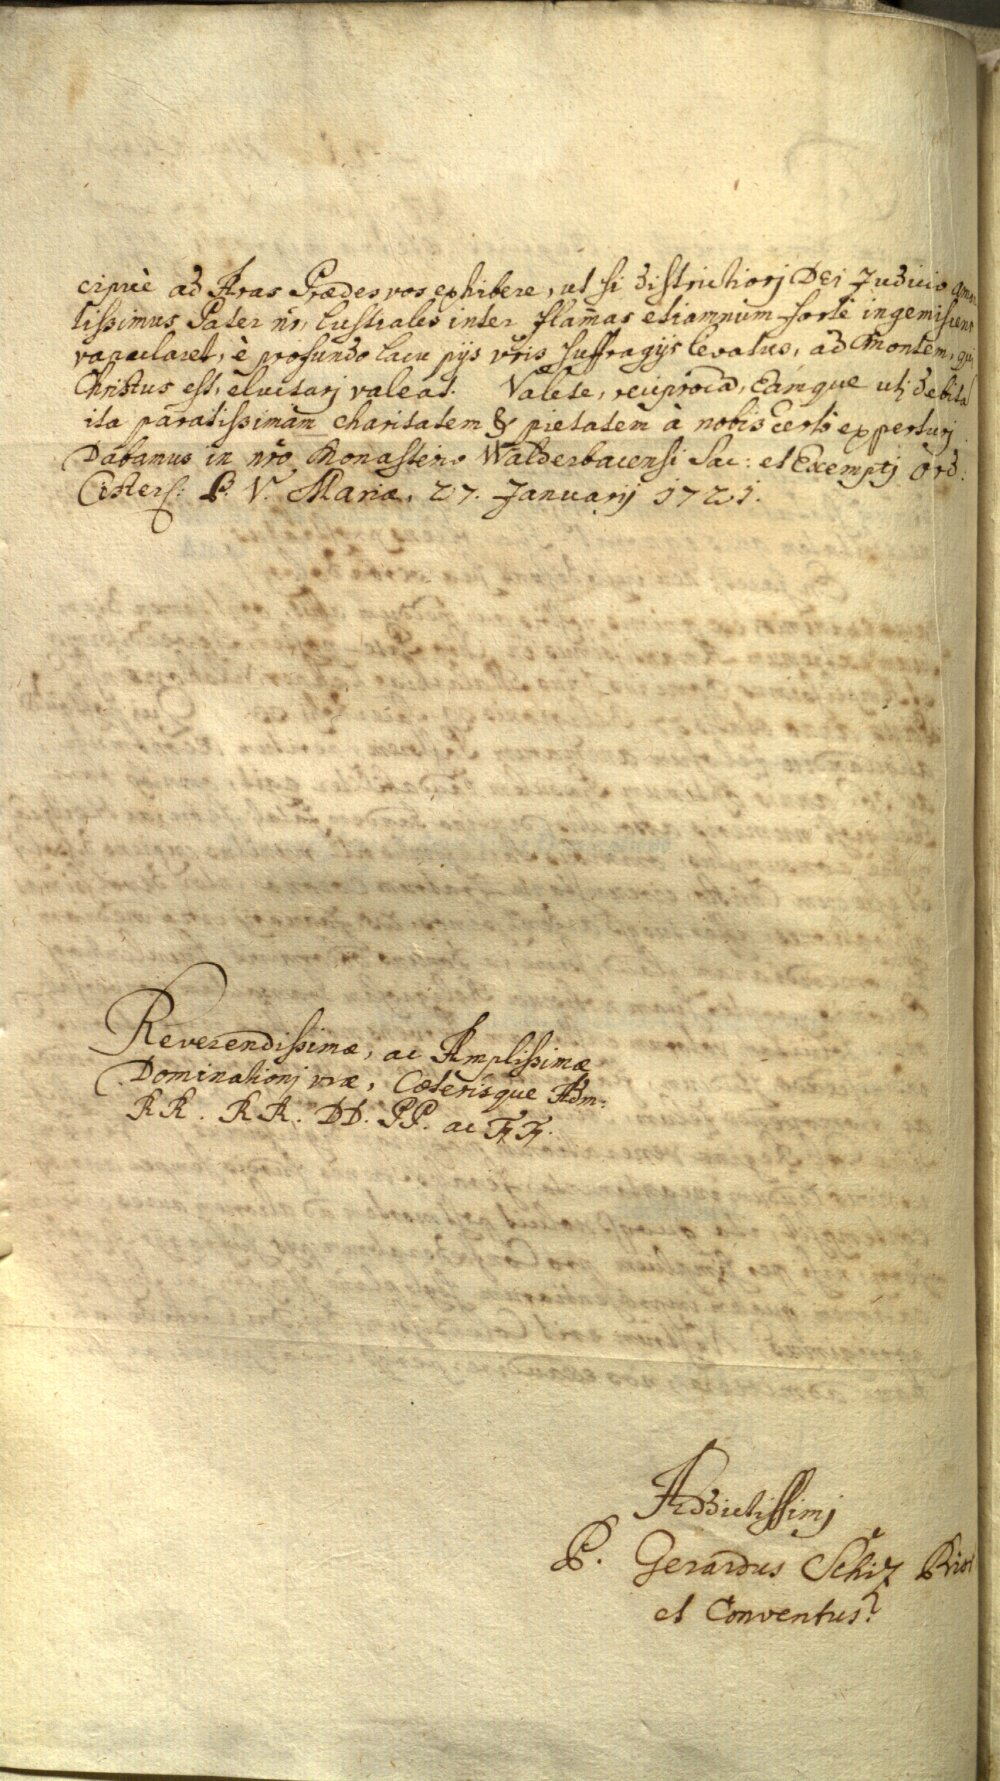 cipuè ad Aras Prædes vos exhibere, ut si districtiorj Dei Judicio aman
tissimus Pater nr, lustrales inter flam̄as etiamnum forte ingemiscens
vapularet, è profundo lacu pijs vr̄is suffragijs levatus, ad Montem, qui
Christus est, eluctarj valeat. Valete, reciprocā, eamque utj debitā
ita paratissimam charitatem & pietatem à nobis certò experturj.
Dabamus in nr̄o Monasterio Walderbacensi Sac: et Exemptj Ord.
Cisterc: B. V. Mariæ, 27. Januarij 1721.
Reverendissimæ, ac Amplissimæ
Dominationj vræ, Cæterisque Adm:
RR. RR. DD. PP. ac FF.
Addictissimj
P. Gerardus Schiz Prior
et Conventus.